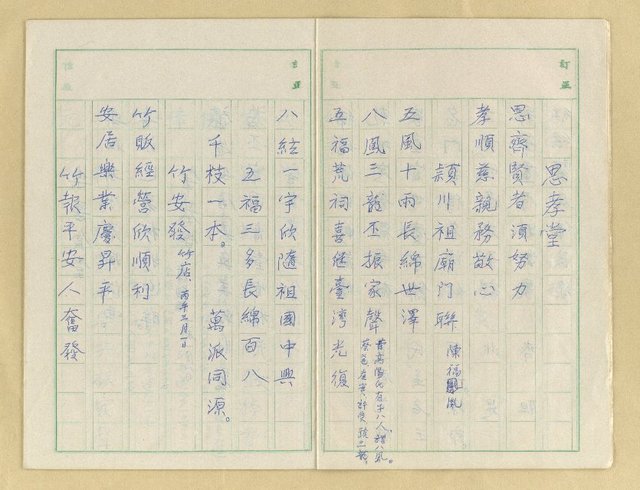 思孝堂
思齊賢者須努力
孝順慈親務敬心
潁川祖廟門聯
陳福
五風十雨長綿世澤
八風三龍丕振家聲
五福荒祠喜繼臺灣光復
八紘一宇欣隨祖國中興
五福三多長綿百八
千枝一本。萬派同源。
竹安發 竹店、
竹販經營欣順利
安居樂業慶昇平
竹報平安人奮發